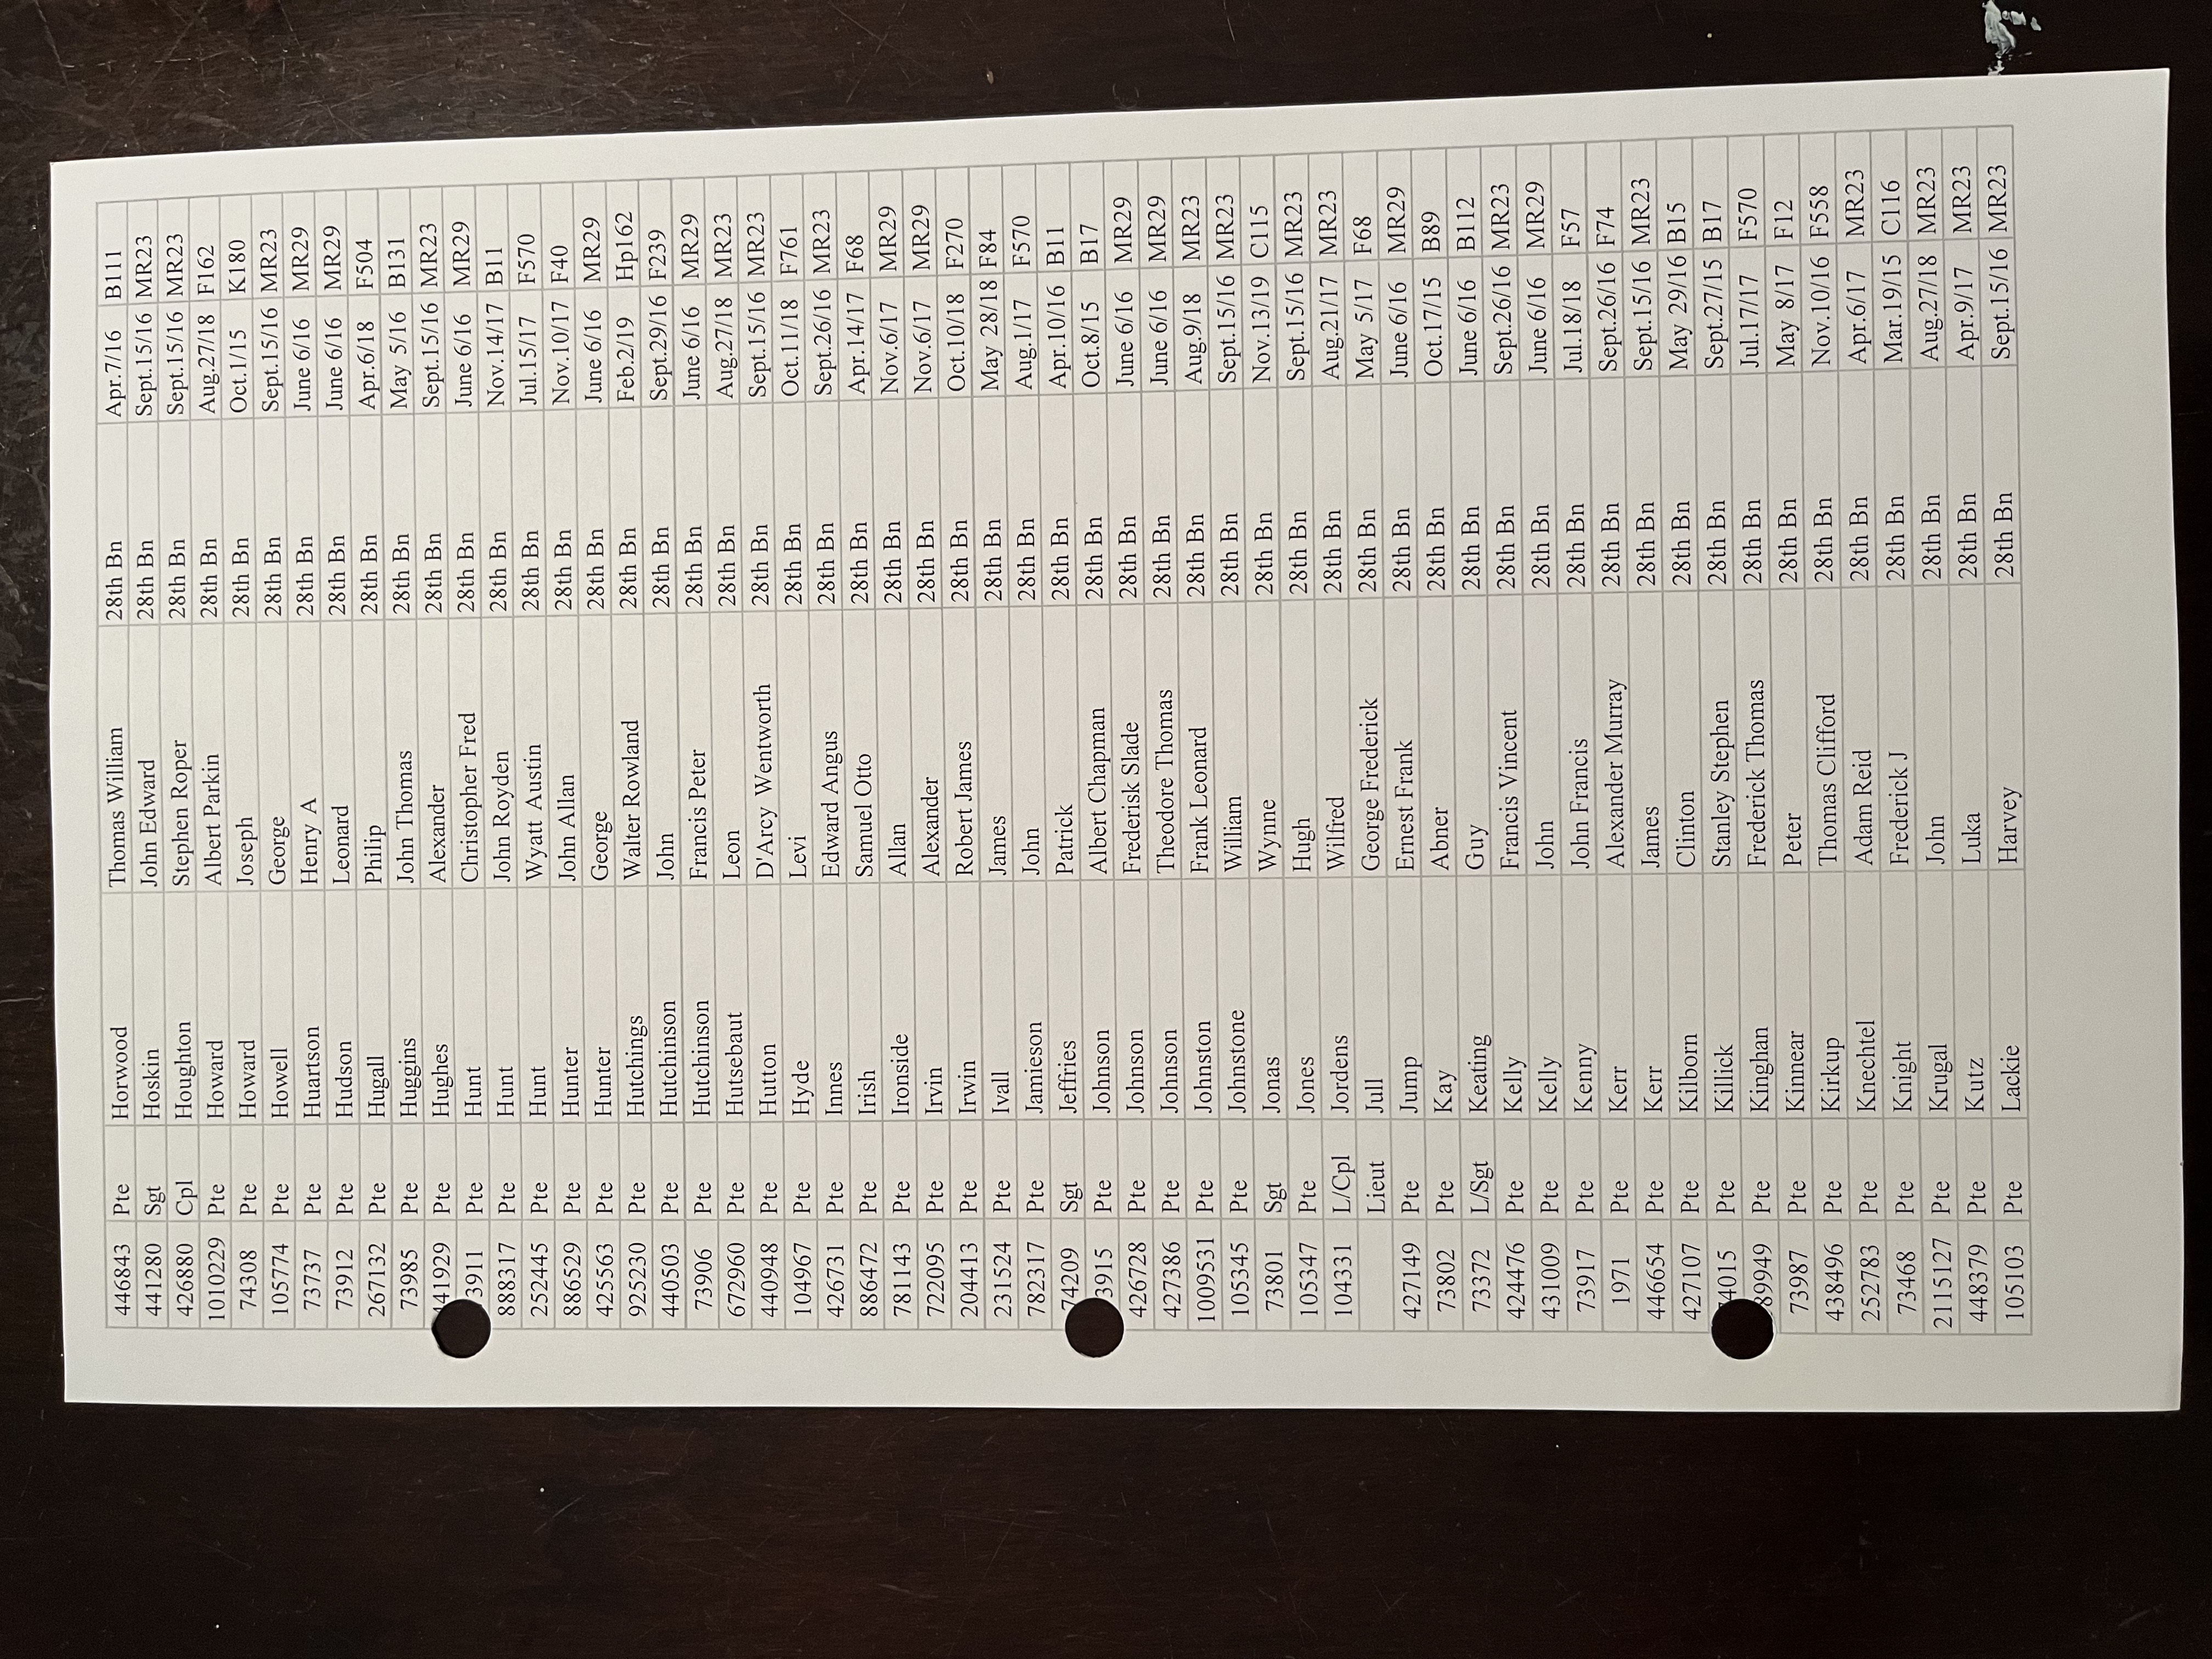 446843 Pte Horwood Thomas William 28th Bn Apr.7/16 B111
441280 Sgt Hoskin John Edward 28th Bn Sept.15/16 MR23
426880 Cpl Houghton Stephen Roper 28th Bn Sept.15/16 MR23
1010229 Pte Howard Albert Parkin 28th Bn Aug.27/18 F162
74308 Pte Howard Joseph 28th Bn Oct.1/15 K180
105774 Pte Howell George 28th Bn Sept.15/16 MR23
73737 Pte Huartson Henry A 28th Bn June 6/16 MR29
73912 Pte Hudson Leonard 28th Bn June 6/16 MR29
267132 Pte Hugall Philip 28th Bn Apr.6/18 F504
73985 Pte Huggins John Thomas 28th Bn May 5/16 B131
441929 Pte Hughes Alexander 28th Bn Sept.15/16 MR23
73911 Pte Hunt Christopher Fred 28th Bn June 6/16 MR29
888317 Pte Hunt John Royden 28th Bn Nov.14/17 B11
252445 Pte Hunt Wyatt Austin 28th Bn Jul.15/17 F570
886529 Pte Hunter John Allan 28th Bn Nov.10/17 F40
425563 Pte Hunter George 28th Bn June 6/16 MR29
925230 Pte Hutchings Walter Rowland 28th Bn Feb.2/19 Hp162
440503 Pte Hutchinson John 28th Bn Sept.29/16 F239
73906 Pte Hutchinson Francis Peter 28th Bn June 6/16 MR29
672960 Pte Hutsebaut Leon 28th Bn Aug.27/18 MR23
440948 Pte Hutton D'Arcy Wentworth 28th Bn Sept.15/16 MR23
104967 Pte Hyde Levi 28th Bn Oct.11/18 F761
426731 Pte Innes Edward Angus 28th Bn Sept.26/16 MR23
886472 Pte Irish Samuel Otto 28th Bn Apr.14/17 F68
781143 Pte Ironside Allan 28th Bn Nov.6/17 MR29
722095 Pte Irvin Alexander 28th Bn Nov.6/17 MR29
204413 Pte Irwin Robert James 28th Bn Oct.10/18 F270
231524 Pte Ivall James 28th Bn May 28/18 F84
782317 Pte Jamieson John 28th Bn Aug.1/17 F570
74209 Sgt Jeffries Patrick 28th Bn Apr.10/16 B11
3915 Pte Johnson Albert Chapman 28th Bn Oct.8/15 B17
426728 Pte Johnson Frederisk Slade 28th Bn June 6/16 MR29
427386 Pte Johnson Theodore Thomas 28th Bn June 6/16 MR29
1009531 Pte Johnston Frank Leonard 28th Bn Aug.9/18 MR23
105345 Pte Johnstone William 28th Bn Sept.15/16 MR23
73801 Sgt Jonas Wynne 28th Bn Nov.13/19 C115
105347 Pte Jones Hugh 28th Bn Sept.15/16 MR23
104331 L/Cpl Jordens Wilfred 28th Bn Aug.21/17 MR23
Lieut Jull George Frederick 28th Bn May 5/17 F68
427149 Pte Jump Ernest Frank 28th Bn June 6/16 MR29
73802 Pte Kay Abner 28th Bn Oct.17/15 B89
73372 L/Sgt Keating Guy 28th Bn June 6/16 B112
424476 Pte Kelly Francis Vincent 28th Bn Sept.26/16 MR23
431009 Pte Kelly John 28th Bn June 6/16 MR29
73917 Pte Kenny John Francis 28th Bn Jul.18/18 F57
1971 Pte Kerr Alexander Murray 28th Bn Sept.26/16 F74
446654 Pte Kerr James 28th Bn Sept.15/16 MR23
427107 Pte Kilborn Clinton 28th Bn May 29/16 B15
74015 Pte Killick Stanley Stephen 28th Bn Sept.27/15 B17
89949 Pte Kinghan Frederick Thomas 28th Bn Jul.17/17 F570
73987 Pte Kinnear Peter 28th Bn May 8/17 F12
438496 Pte Kirkup Thomas Clifford 28th Bn Nov.10/16 F558
252783 Pte Knechtel Adam Reid 28th Bn Apr.6/17 MR23
73468 Pte Knight Frederick J 28th Bn Mar.19/15 C116
2115127 Pte Krugal John 28th Bn Aug.27/18 MR23
448379 Pte Kutz Luka 28th Bn Apr.9/17 MR23
105103 Pte Lackie Harvey 28th Bn Sept.15/16 MR23